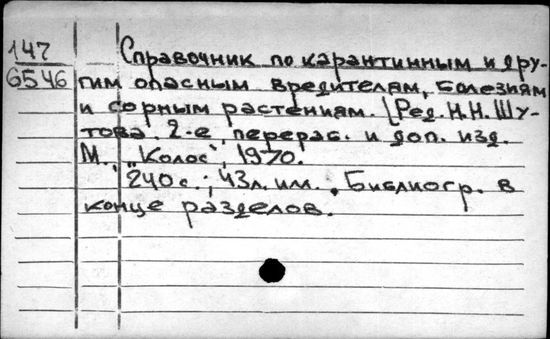 147
6546
Справочник по карантинным и дру-
гим опасным вредителям, болезням
и сорным растениям. [Ред. Н.Н. Шу-
това. 2-е перераб. и доп. изд.
М., "Колос", 1970.
240 с.; 43 л. илл. Библиогр. в
конце разделов.